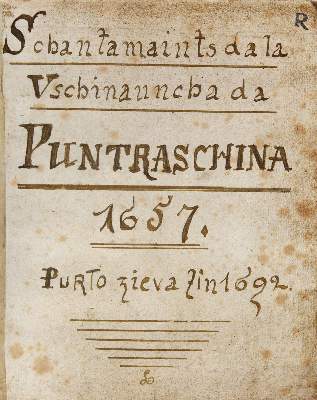 R
Schantamaints da la
Vschinauncha da
PUNTRASCHINA
1657.
PURTO zieva fin 1692.